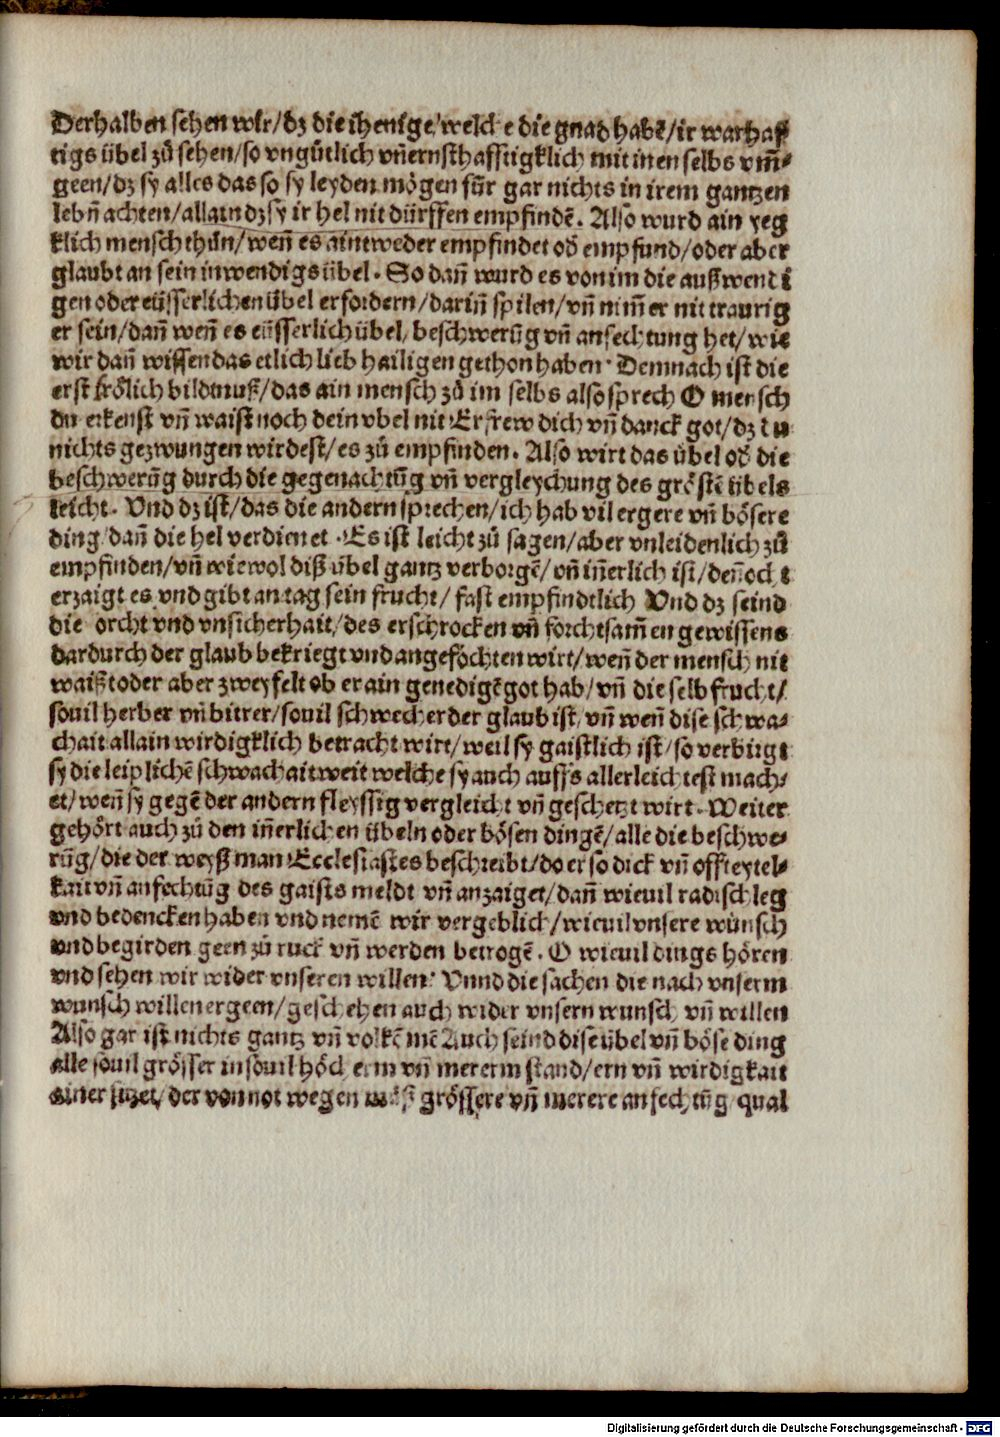 Derhalben sehen wir/dz die ihenige/welche die gnad habē/ir warhaff
tigs übel zů sehen/so vngütlich vñ ernsthafftigklich mit inen selbs vm̄⸗
geen/dz sy alles das so sy leyden mögen für gar nichts in irem gantzen
lebñ achten/allain dz sy ir hel nit dürffen empfindē. Also wurd ain yeg
klich mensch thůn/weñ es aintweder empfindet oď empfund/oder aber
glaubt an sein inwendigs übel. So dañ wurd es von im die außwendi
gen oder eüsserlichen übel erfordern/dariñ spilen/vñ nim̄er nit traurig
er sein/dañ weñ es eüsserlich übel/beschwerūg vñ anfechtung het/wie
wir dañ wissen das etlich lieb hailigen gethon haben. Demnach ist die
erst frölich bildtnuß/das ain mensch zů im selbs also sprech O mensch
du erkenst vñ waist noch dein vbel nit Erfrew dich vñ danck got/dz du
nichts gezwungen wirdest/es zů empfinden. Also wirt das übel oď die
beschwerūg durch die gegenachtūg vñ vergleychung des gröstē übels
leicht. Vnd dz ist/das die andern sprechen/ich hab vil ergere vñ bösere
ding/dañ die hel verdienet. Es ist leicht zů sagen/aber vnleidenlich zů
empfinden/vñ wiewol diß übel gantz verborgē/vñ iñerlich ist/deñocht
erzaigt es vnd gibt an tag sein frucht/fast empfindtlich Vnd dz seind
die orcht vnd vnsicherhait/des erschrocken vñ forchtsam̄en gewissens
dardurch der glaub bekriegt vnd angefochten wirt/weñ der mensch nit
waißt oder aber zweyfelt ob er ain genedigē got hab/vñ die selb frucht/
souil herber vñ bitrer/souil schwecher der glaub ist/vñ weñ dise schwa⸗
chait allain wirdigklich betracht wirt/weil sy gaistlich ist/so verbirgt
sy die leiplichē schwachait weit welche sy auch auffs allerleichtest mach⸗
et/weñ sy gegē der andern fleyssig vergleicht vñ geschetzt wirt. Weiter
gehört auch zů den iñerlichen übeln oder bösen dingē/alle die beschwe⸗
rūg/die der weyß man Ecclesiastes beschreibt/do er so dick vñ offt eytel⸗
kait vñ anfechtūg des gaists meldt vñ anzaiget/dañ wieuil radtschleg
vnd bedencken haben vnd nemē wir vergeblich/wieuil vnsere wünsch
vnd begirden geen zů ruck vñ werden betrogē. O wieuil dings hören
vnd sehen wir wider vnseren willen? Vnnd die sachen die nach vnserm
wunsch willen ergeen/geschehen auch wider vnsern wunsch vñ willen
Also gar ist nichts gantz vñ volkēmē Auch seind dise übel vñ böse ding
alle souil grösser in souil höcherm vñ mererm stand/ern vñ wirdigkait
ainer sitzet/der von not wegen můß grössere vñ merere anfechtūg/qual
Digitalisierung gefördert durch die Deutsche Forschungsgemeinschaft - DFG